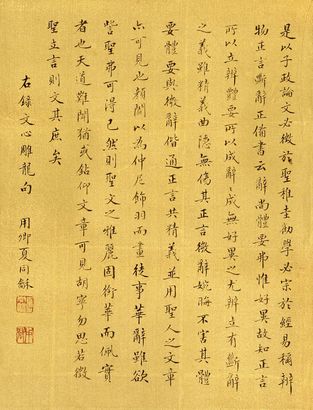 是以子政論文必徵於聖稚圭勸學必宗於經易稱辨
物正言斷辭正備書云辭尚體要弗惟好異故知正言
所以立辨體要所以成辭〻成無好異之尤辨立有斷辭
之義雖精義曲隱無傷其正言微辭婉晦不害其體
要體要與微辭偕通正言共精義並用聖人之文章
亦可見也顏闔以為仲尼飾羽而畫徒事華辭雖欲
訾聖弗可得已然則聖文之雅麗固銜華而佩實
者也天道難聞猶或鉆仰文章可見胡寧勿思若徵
聖立言則文其庶矣
右錄文心雕龍句 用卿夏同龢